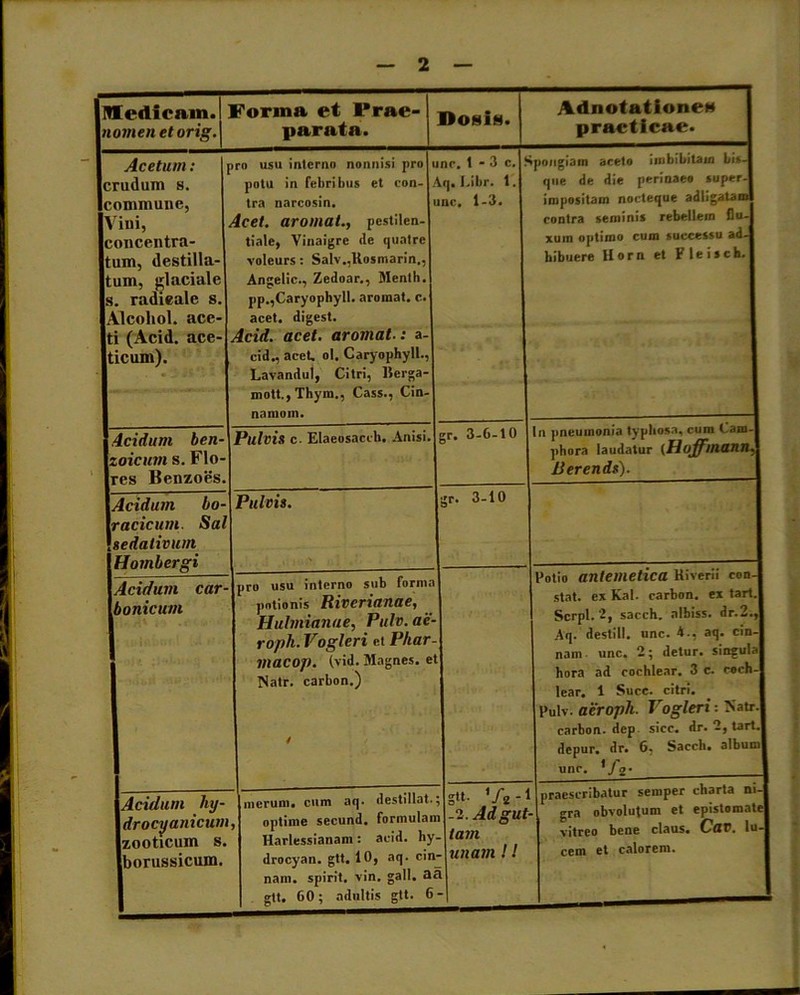 — 2 —
Medicam.
nomen et orig.
Forma et Prae-
parata.
Dosis.
Adnotationes
practicae.
Acetum:
crudum s.
commune,
Vini,
concentra-
tum, destilla-
tum, glaciale
s. radicale s.
Alcohol. ace-
ti (Acid. ace-
ticum).
pro usu interno nonnisi pro
potu in febribus et con-
tra narcosin.
Acet. aromat., pestilen-
tiale, Vinaigre de quatre
voleurs: Salv.,Rosmarin.,
Angelic., Zedoar., Menth.
pp.,Caryophyll. aromat. c.
acet. digest.
Acid. acet. aromat.: a-
cid., acet. ol. Caryophyll.,
Lavandul, Citri, Berga-
mott., Thym., Cass., Cin-
namom.
unc. 1 - 3 c.
Aq. Libr. 1.
unc. 1-3.
Spongiam aceto imbibitam bis-
que de die perinaeo super-
impositam nocteque adligatam
contra seminis rebellem flu-
xum optimo cum successu ad-
hibuere Horn et Fleisch.
Acidum ben-
zoicum s. Flo-
res Benzoës.
Pulvis c. Elaeosacch. Anisi.
gr. 3-6-10
In pneumonia typhosa. cum Cam-
phora laudatur (Hoffmann,
Berends).
Acidum bo-
racicum. Sal
sedativum
Hombergi
Pulvis.
gr. 3-10
Acidum car-
bonicum
pro usu interno sub forma
potionis Riverianae,
Hulmianae, Pulv. aë-
roph. Vogleri et Phar-
macop. (vid. Magnes. et
Natr. carbon.)
Potio antemetica Riverii con-
stat. ex Kal. carbon. ex tart.
Scrpl. 2, sacch. albiss. dr. 2.,
Aq. destill. unc. 4., aq. cin-
nam unc. 2; detur. singula
hora ad cochlear. 3 c. coch-
lear. 1 Succ. citri.
Pulv. aëroph. Vogleri: Natr.
carbon. dep sicc. dr. 2, tart.
depur. dr. 6, Sacch. album
unc. 1/2.
Acidum hy-
drocyanicum,
zooticum s.
borussicum.
merum. cum aq. destillat.;
optime secund. formulam
Harlessianam: acid. hy-
drocyan. gtt. 10, aq. cin-
nam. spirit. vin. gall. aā
gtt. 60; adultis gtt. 6-
gtt. 1/2 - 1
-2. Ad gut-
tam
unam !!
praescribatur semper charta ni-
gra obvolutum et epistomate
vitreo bene claus. Cav. lu-
cem et calorem.